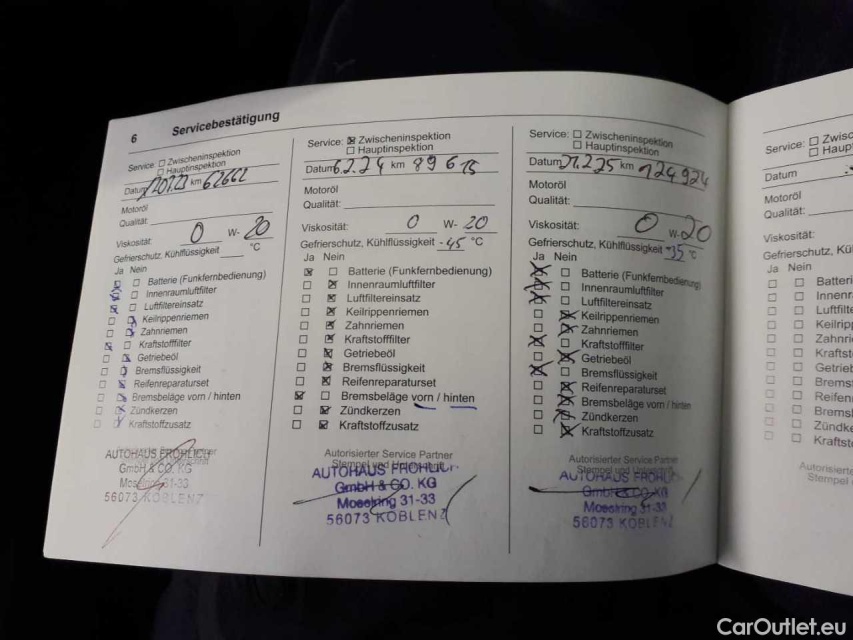 6 Servicebestätigung
Service: ☐ Zwischeninspektion
☐ Hauptinspektion
Datum km 62662
Motoröl
Qualität:
Viskosität: 0 W- 20
Gefrierschutz, Kühlflüssigkeit °C
Ja Nein
Batterie (Funkfernbedienung)
Innenraumluftfilter
Luftfiltereinsatz
Keilrippenriemen
Zahnriemen
Kraftstofffilter
Getriebeöl
Bremsflüssigkeit
Reifenreparaturset
Bremsbeläge vorn / hinten
Zündkerzen
Kraftstoffzusatz
AUTOHAUS FRÖHLICH
GmbH & CO. KG
Moselring 31-33
56073 KOBLENZ
Service: ☒ Zwischeninspektion
☐ Hauptinspektion
Datum 6.2.24 km 89615
Motoröl
Qualität:
Viskosität: 0 W- 20
Gefrierschutz, Kühlflüssigkeit -45 °C
Ja Nein
☒ ☐ Batterie (Funkfernbedienung)
☐ ☒ Innenraumluftfilter
☐ ☒ Luftfiltereinsatz
☐ ☒ Keilrippenriemen
☐ ☒ Zahnriemen
☐ ☒ Kraftstofffilter
☐ ☒ Getriebeöl
☐ ☒ Bremsflüssigkeit
☐ ☒ Reifenreparaturset
☒ ☐ Bremsbeläge vorn / hinten
☐ ☒ Zündkerzen
☐ ☒ Kraftstoffzusatz
Autorisierter Service Partner
Stempel und Unterschrift
AUTOHAUS FRÖHLICH
GmbH & CO. KG
Moselring 31-33
56073 KOBLENZ
Service: ☐ Zwischeninspektion
☐ Hauptinspektion
Datum 21.2.25 km 124924
Motoröl
Qualität:
Viskosität: 0 W- 20
Gefrierschutz, Kühlflüssigkeit -35 °C
Ja Nein
☒ ☐ Batterie (Funkfernbedienung)
☒ ☐ Innenraumluftfilter
☒ ☐ Luftfiltereinsatz
☐ ☒ Keilrippenriemen
☐ ☒ Zahnriemen
☒ ☐ Kraftstofffilter
☐ ☒ Getriebeöl
☒ ☐ Bremsflüssigkeit
☐ ☒ Reifenreparaturset
☐ ☒ Bremsbeläge vorn / hinten
☐ ☒ Zündkerzen
☐ ☒ Kraftstoffzusatz
Autorisierter Service Partner
Stempel und Unterschrift
AUTOHAUS FRÖHLICH
GmbH & CO. KG
Moselring 31-33
56073 KOBLENZ
Service: ☐ Zwisc
☐ Haup
Datum
Motoröl
Qualität:
Viskosität:
Gefrierschutz, Kü
Ja Nein
☐ ☐ Batteri
☐ ☐ Innenr
☐ ☐ Luftfilte
☐ ☐ Keilripp
☐ ☐ Zahnri
☐ ☐ Kraftst
☐ ☐ Getrieb
☐ ☐ Brems
☐ ☐ Reifen
☐ ☐ Brems
☐ ☐ Zündke
☐ ☐ Kraftst
Autorisierte
Stempel
CarOutlet.eu